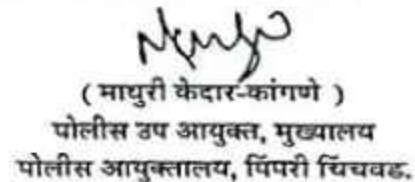 ( माधुरी केदार-कांगणे )
पोलीस उप आयुक्त, मुख्यालय
पोलीस आयुक्तालय, पिंपरी चिंचवड.